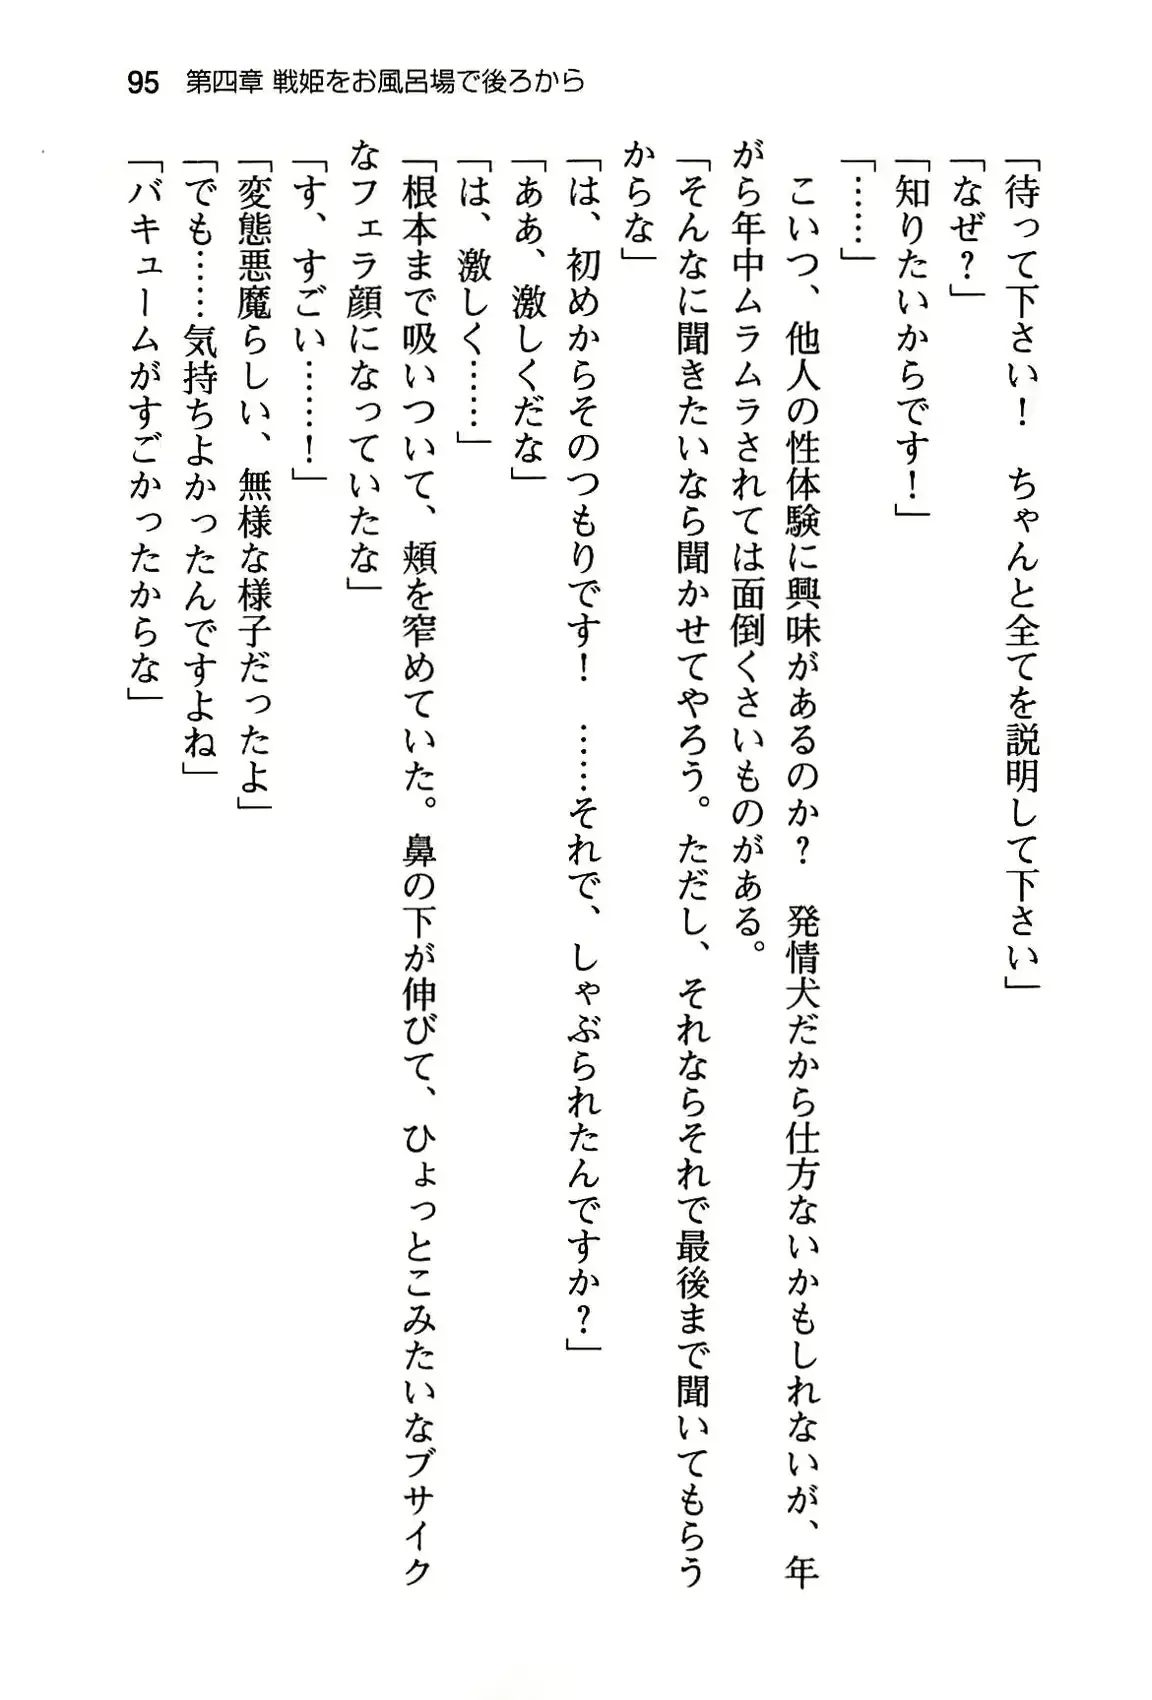 95 第四章 戦姫をお風呂場で後ろから
「待って下さい！　ちゃんと全てを説明して下さい」
「なぜ？」
「知りたいからです！」
「……」
　こいつ、他人の性体験に興味があるのか？　発情犬だから仕方ないかもしれないが、年
がら年中ムラムラされては面倒くさいものがある。
「そんなに聞きたいなら聞かせてやろう。ただし、それならそれで最後まで聞いてもらう
からな」
「は、初めからそのつもりです！　……それで、しゃぶられたんですか？」
「ああ、激しくだな」
「は、激しく……」
「根本まで吸いついて、頬を窄めていた。鼻の下が伸びて、ひょっとこみたいなブサイク
なフェラ顔になっていたな」
「す、すごい………！」
「変態悪魔らしい、無様な様子だったよ」
「でも……気持ちよかったんですよね」
「バキュームがすごかったからな」